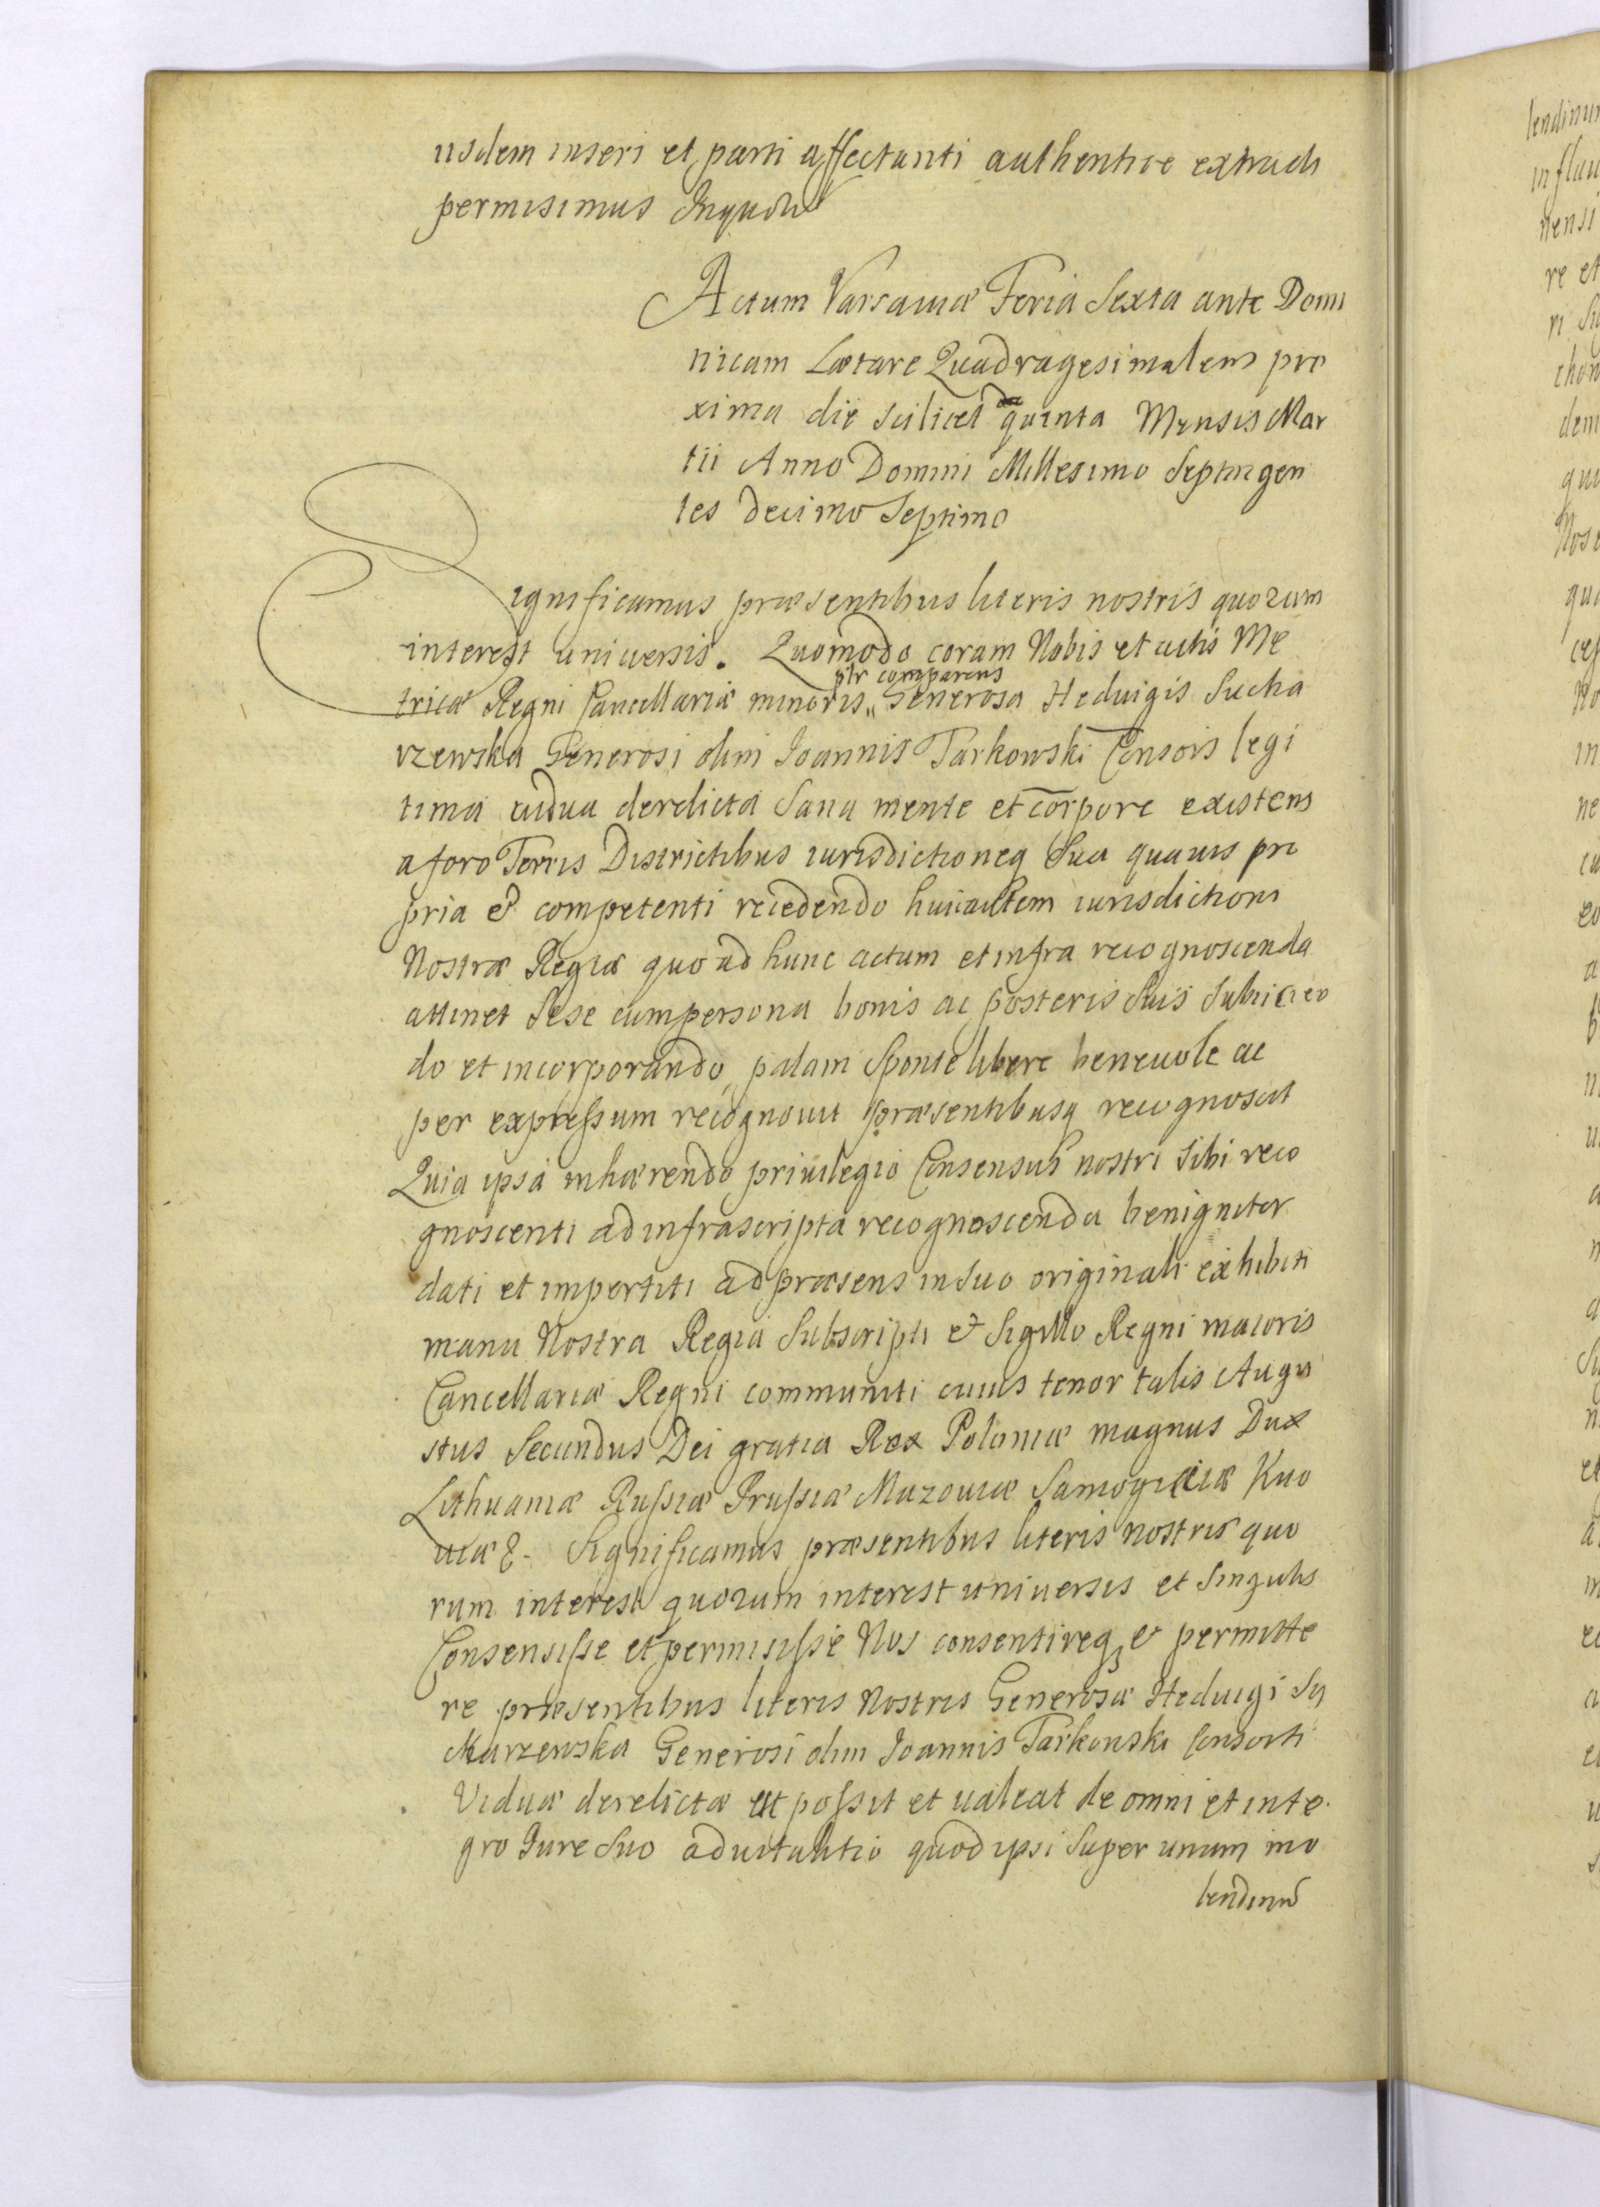 iisdem inseri et parti affectanti authentice extradi
permisimus
Actum Varsaviæ Feria Sexta ante Domi
nicam Lætare Quadragesimalem pro
xima die scilicet quinta Mensis Mar
tii Anno Domini Millesimo Septingen
tes decimo Septimo
Significamus præsentibus literis nostris quorum
interest universis. Quomodo coram Nobis et actis Me
ptr comparens
tricæ Regni Cancellariæ minoris,, Generosa Heduigis Sucha
rzewska Generosi olim Joannis Tarkowski Consors legi
tima vidua derelicta Sana mente et corpore existens
a foro Terris Districtibus iurisdictioneq Sua quavis pro
pria et competenti recedendo huic autem iurisdictioni
Nostræ Regiæ quo ad hunc actum et infra recognoscenda
attinet Sese cum persona bonis ac posteris Suis Subiicien
do et incorporando, palam Sponte libere benevole ac
per expressum recognovit præsentibusq recognoscit
Quia ipsa inhærendo privilegio Consensus nostri Sibi reco
gnoscenti ad infrascripta recognoscenda benigniter
dati et impertiti ad præsens in Suo originali exhibiti
manu Nostra Regia Subscripti et Sigillo Regni maioris
Cancellariæ Regni communiti cuius tenor talis Augu
stus Secundus Dei gratia Rex Poloniæ magnus Dux
Lithuaniæ Russiæ Prussiæ Mazoviæ Samogitiæ Kiio
viæ &. Significamus præsentibus literis nostris quo
rum interest quorum interest universis et Singulis
Consensisse et permisisse Nos consentireq et permitte
re præsentibus literis Nostris Generosæ Heduigi Su
charzewska Generosi olim Joannis Tarkowski Consorti
Viduæ derelictæ ut possit et valeat de omni et inte
gro Jure Suo advitalitio quod ipsi Super unum mo
lendinū